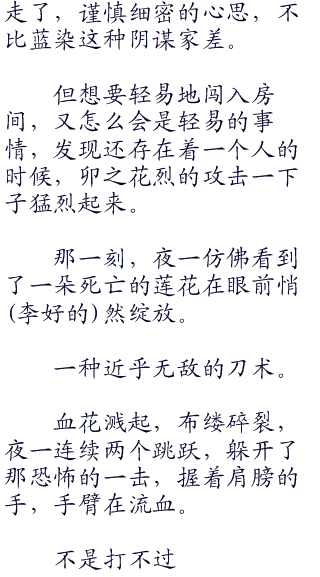 走了，谨慎细密的心思，不
比蓝染这种阴谋家差。
但想要轻易地闯入房
间，又怎么会是轻易的事
情，发现还存在着一个人的
时候，卯之花烈的攻击一下
子猛烈起来。
那一刻，夜一仿佛看到
了一朵死亡的莲花在眼前悄
(李好的)然绽放。
一种近乎无敌的刀术。
血花溅起，布缕碎裂，
夜一连续两个跳跃，躲开了
那恐怖的一击，握着肩膀的
手，手臂在流血。
不是打不过